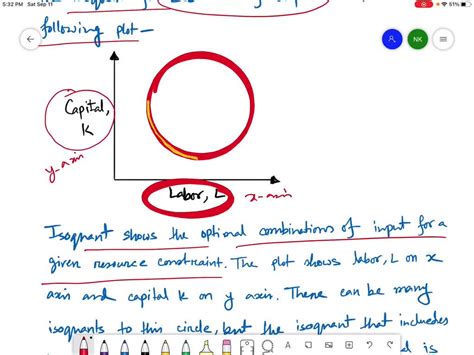 5:32 PM Sat Sep 11
51%
following plot—
NK
Capital,
K
y-axis
Labor, L
x-axis
Isoquant shows the optional combinations of input for a
given resource constraint. The plot shows labor, L on x
axis and capital K on y axis. There can be many
isoquants to this circle, but the isoquant that includes
is